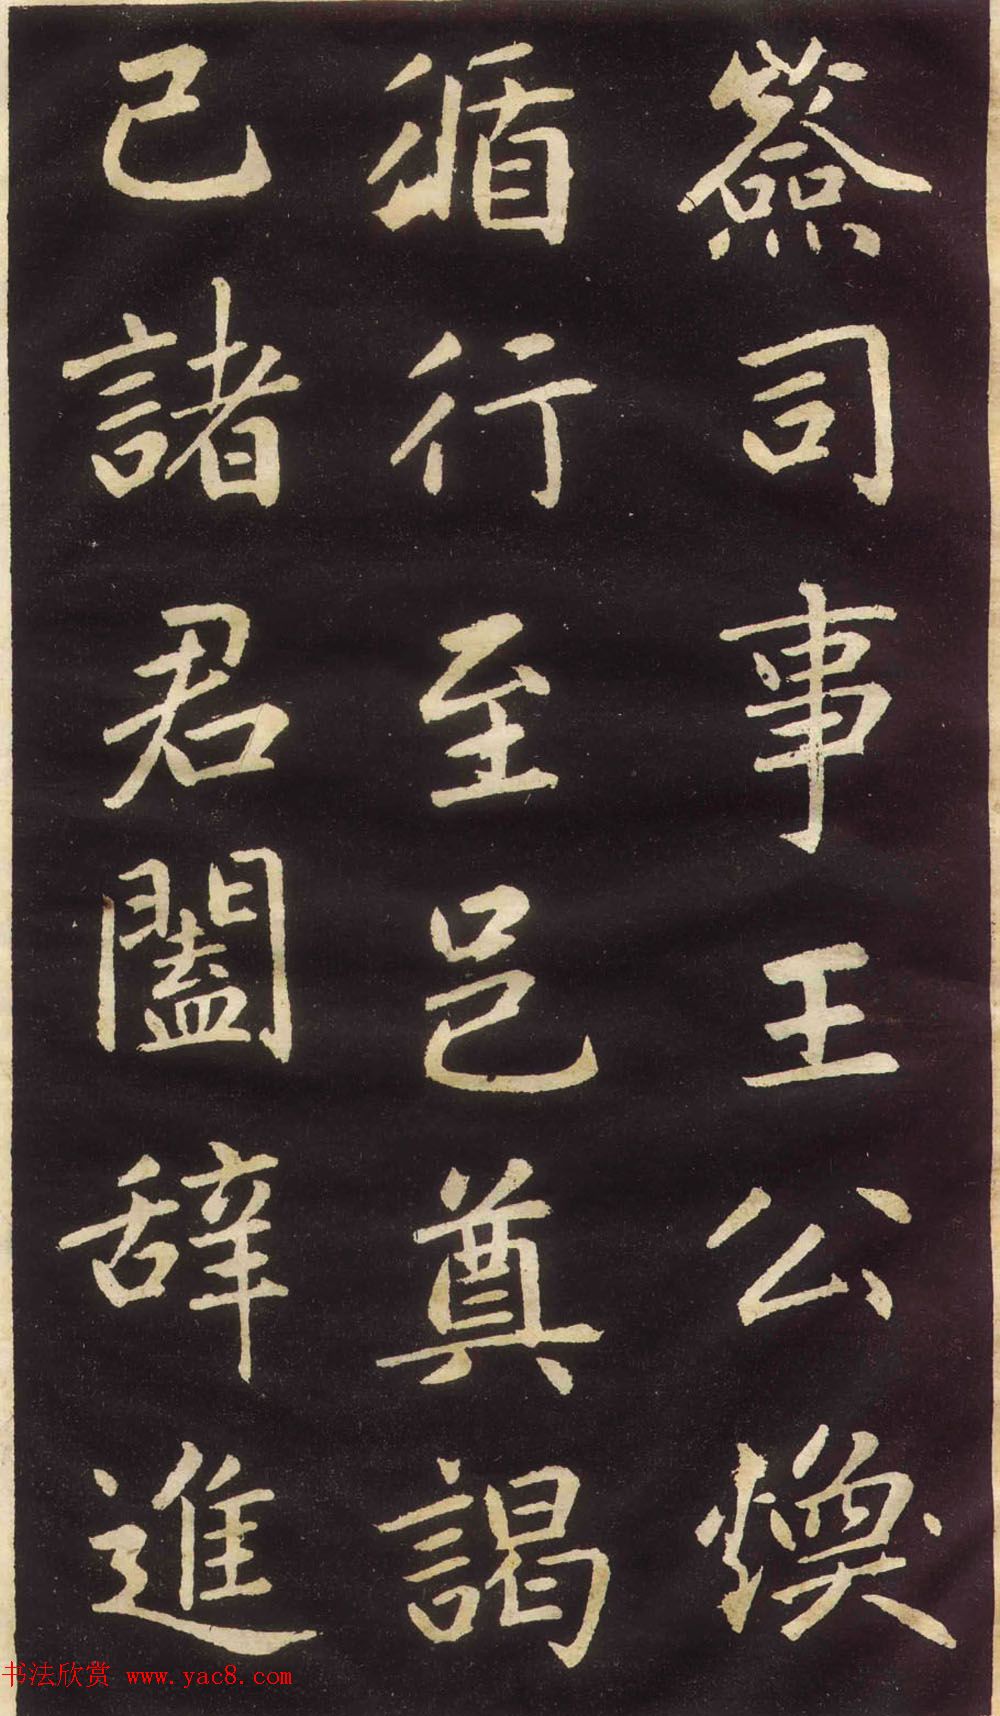 簽司事王公煥
循行至邑奠謁
已諸君闔辭進
书法欣赏 www.yac8.com